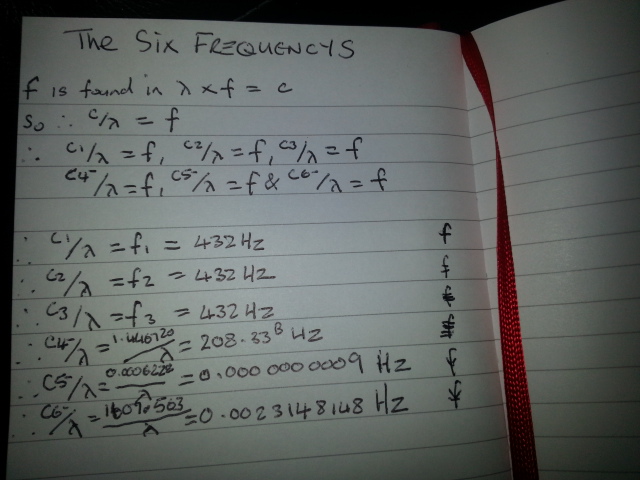 The Six FREQUENCYS
f is found in λ × f = c
So ∴ c/λ = f
∴ C1/λ = f, C2/λ = f, C3/λ = f
C4-/λ = f, C5-/λ = f & C6-/λ = f
∴ C1/λ = f1 = 432Hz f
∴ C2/λ = f2 = 432Hz f
∴ C3/λ = f3 = 432Hz
∴ C4-/λ = /λ = 208.33 Hz
∴ C5-/λ = 0.0006228/λ = 0.0000000009 Hz
∴ C6-/λ = /λ = 0.0023148148 Hz